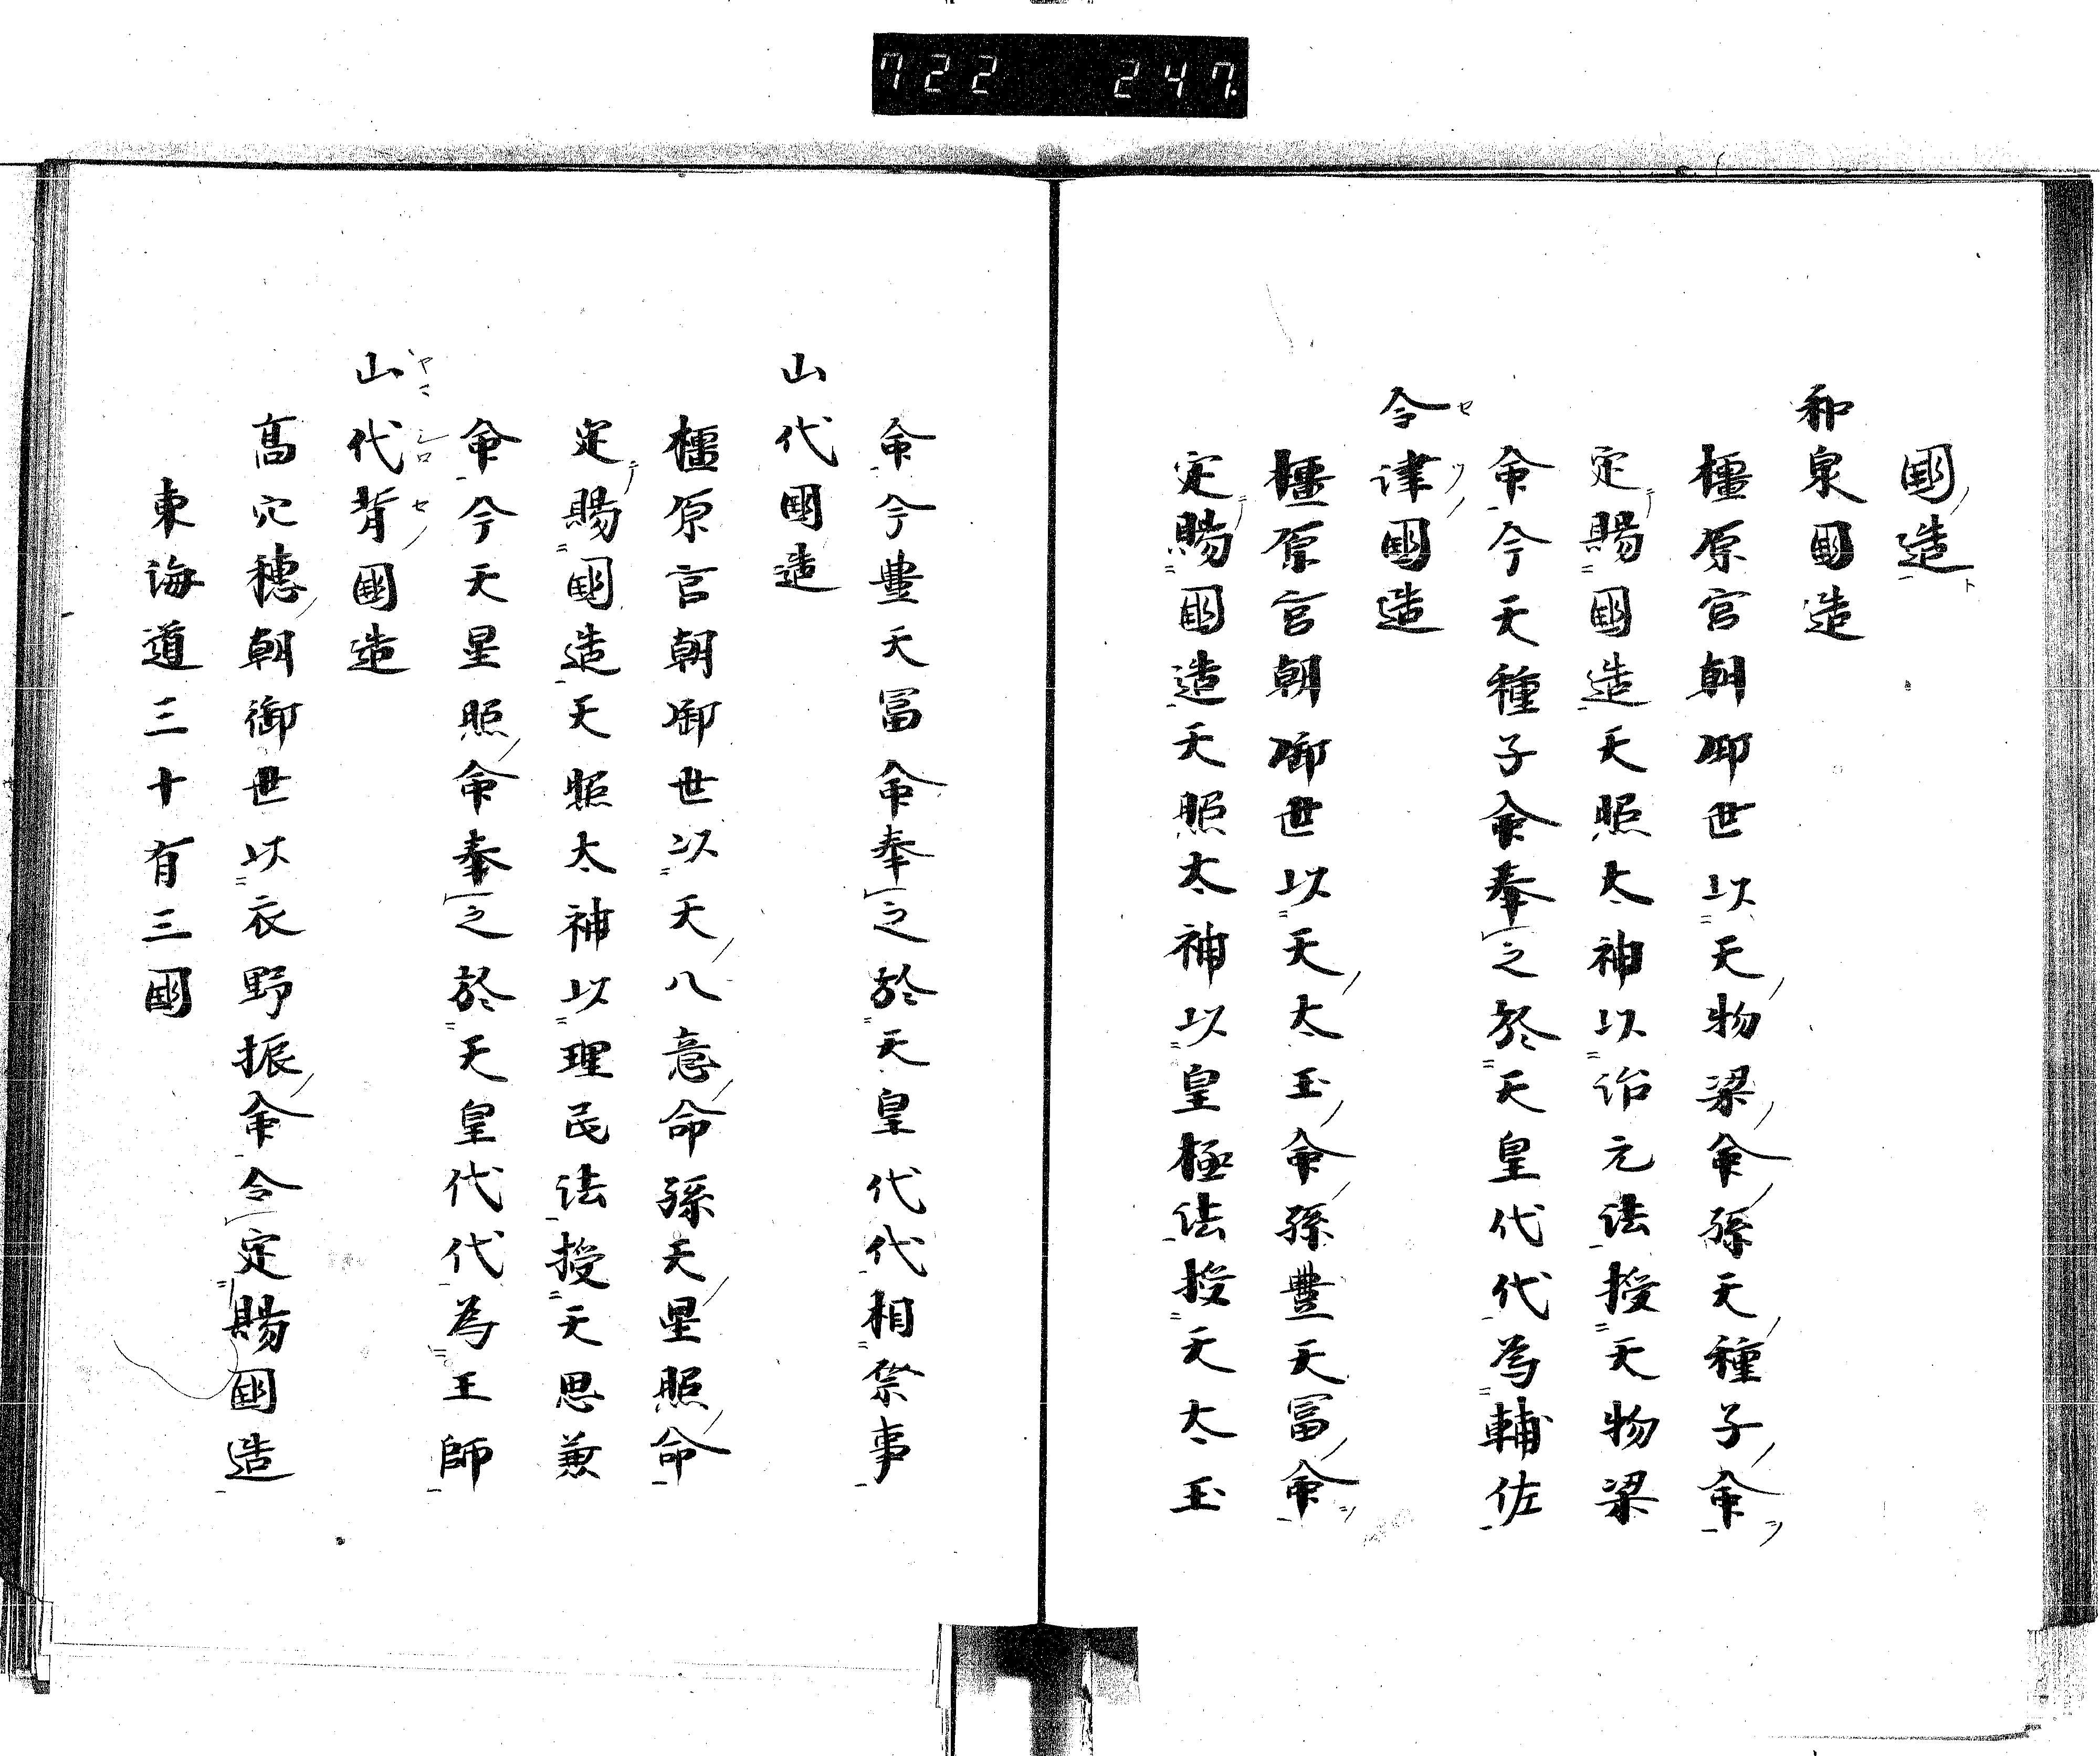 722 247.
國造
和泉國造
橿原宮朝御世以天物梁命孫天種子命
定賜國造天照太神以治元法授天物梁
命今天種子命奉之於天皇代代為輔佐
令津國造
橿原宮朝御世以天太玉命孫豊天冨命
定賜國造天照太神以皇極法授天太玉
命今豊天冨命奉之於天皇代代相祭事
山代國造
橿原宮朝御世以天八意命孫天星照命
定賜國造天照太神以理民法授天思兼
命今天星照命奉之於天皇代代為王師
山代背國造
高穴穗朝御世以衣野振命令定賜國造
東海道三十有三國